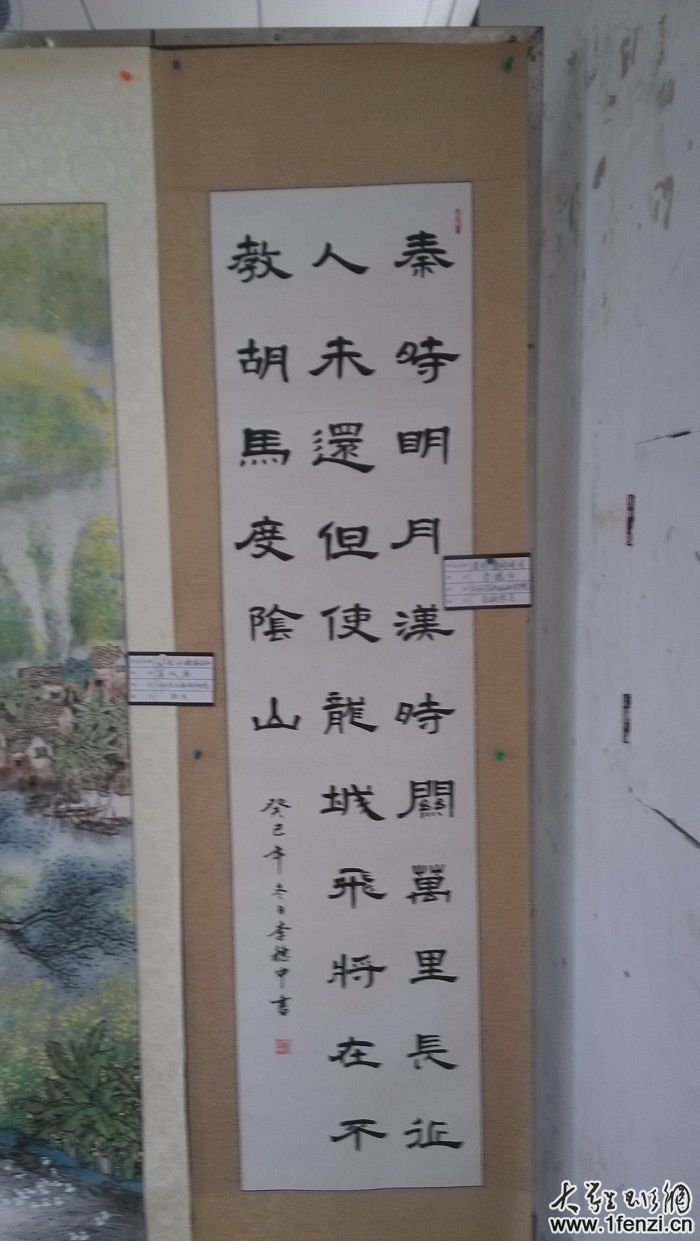 秦時明月漢時關萬里長征
人未還但使龍城飛將在不
教胡馬度陰山
癸巳年冬日李中書
www.1fenzi.cn